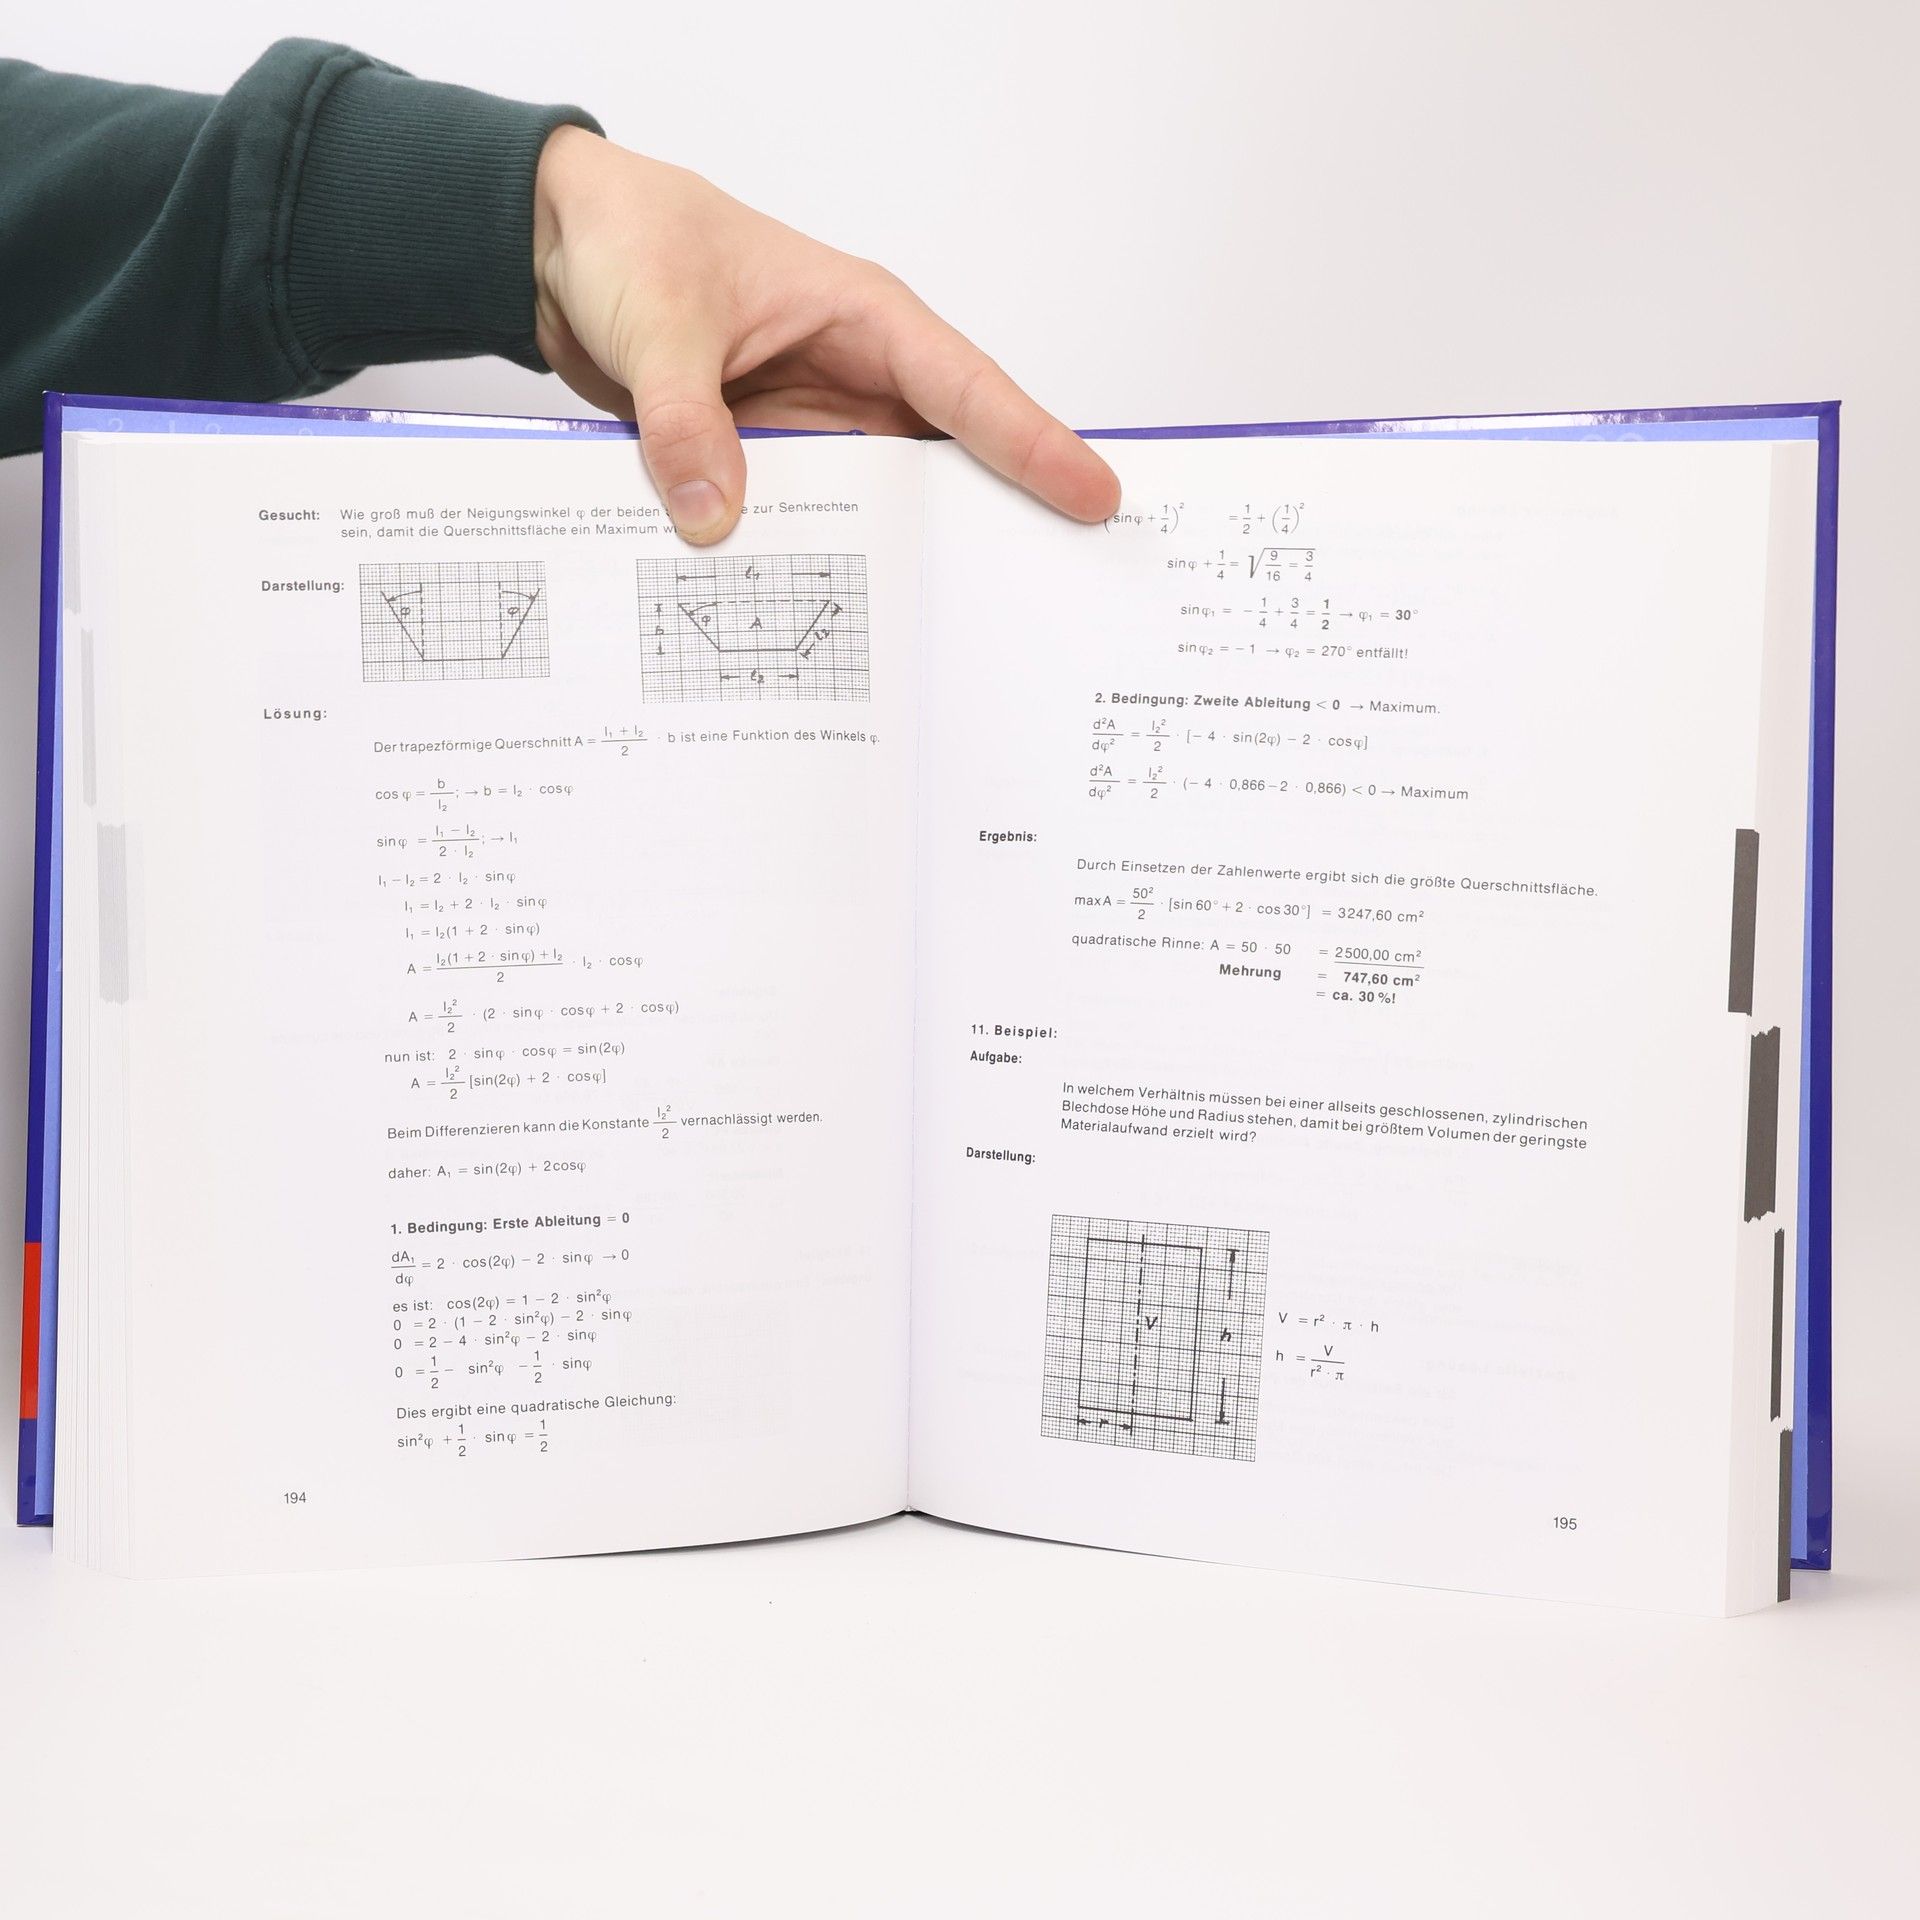 Gesucht: Wie groß muß der Neigungswinkel φ der beiden zur Senkrechten
sein, damit die Querschnittsfläche ein Maximum
Darstellung:
φ φ
l₁
φ A b l₂
l₂
Lösung:
Der trapezförmige Querschnitt A = (l₁ + l₂)/2 · b ist eine Funktion des Winkels φ.
cos φ = b/l₂; → b = l₂ · cosφ
sinφ = (l₁ − l₂)/(2 · l₂); → l₁
l₁ − l₂ = 2 · l₂ · sinφ
l₁ = l₂ + 2 · l₂ · sinφ
l₁ = l₂(1 + 2 · sinφ)
A = (l₂(1 + 2 · sinφ) + l₂)/2 · l₂ · cosφ
A = l₂²/2 · (2 · sinφ · cosφ + 2 · cosφ)
nun ist: 2 · sinφ · cosφ = sin(2φ)
A = l₂²/2 [sin(2φ) + 2 · cosφ]
Beim Differenzieren kann die Konstante l₂²/2 vernachlässigt werden.
daher: A₁ = sin(2φ) + 2cosφ
1. Bedingung: Erste Ableitung = 0
dA₁/dφ = 2 · cos(2φ) − 2 · sinφ → 0
es ist: cos(2φ) = 1 − 2 · sin²φ
0 = 2 · (1 − 2 · sin²φ) − 2 · sinφ
0 = 2 − 4 · sin²φ − 2 · sinφ
0 = 1/2 − sin²φ − 1/2 · sinφ
Dies ergibt eine quadratische Gleichung:
sin²φ + 1/2 · sinφ = 1/2
194
(sinφ + 1/4)² = 1/2 + (1/4)²
sinφ + 1/4 = √(9/16 = 3/4
sinφ₁ = − 1/4 + 3/4 = 1/2 → φ₁ = 30°
sinφ₂ = − 1 → φ₂ = 270° entfällt!
2. Bedingung: Zweite Ableitung < 0 → Maximum.
d²A/dφ² = l₂²/2 · [− 4 · sin(2φ) − 2 · cosφ]
d²A/dφ² = l₂²/2 · (− 4 · 0,866 − 2 · 0,866) < 0 → Maximum
Ergebnis:
Durch Einsetzen der Zahlenwerte ergibt sich die größte Querschnittsfläche.
maxA = 50²/2 · [sin 60° + 2 · cos 30°] = 3247,60 cm²
quadratische Rinne: A = 50 · 50 = 2500,00 cm²
Mehrung = 747,60 cm²
= ca. 30 %!
11. Beispiel:
Aufgabe:
In welchem Verhältnis müssen bei einer allseits geschlossenen, zylindrischen
Blechdose Höhe und Radius stehen, damit bei größtem Volumen der geringste
Materialaufwand erzielt wird?
Darstellung:
V h
r
V = r² · π · h
h = V/(r² · π)
195